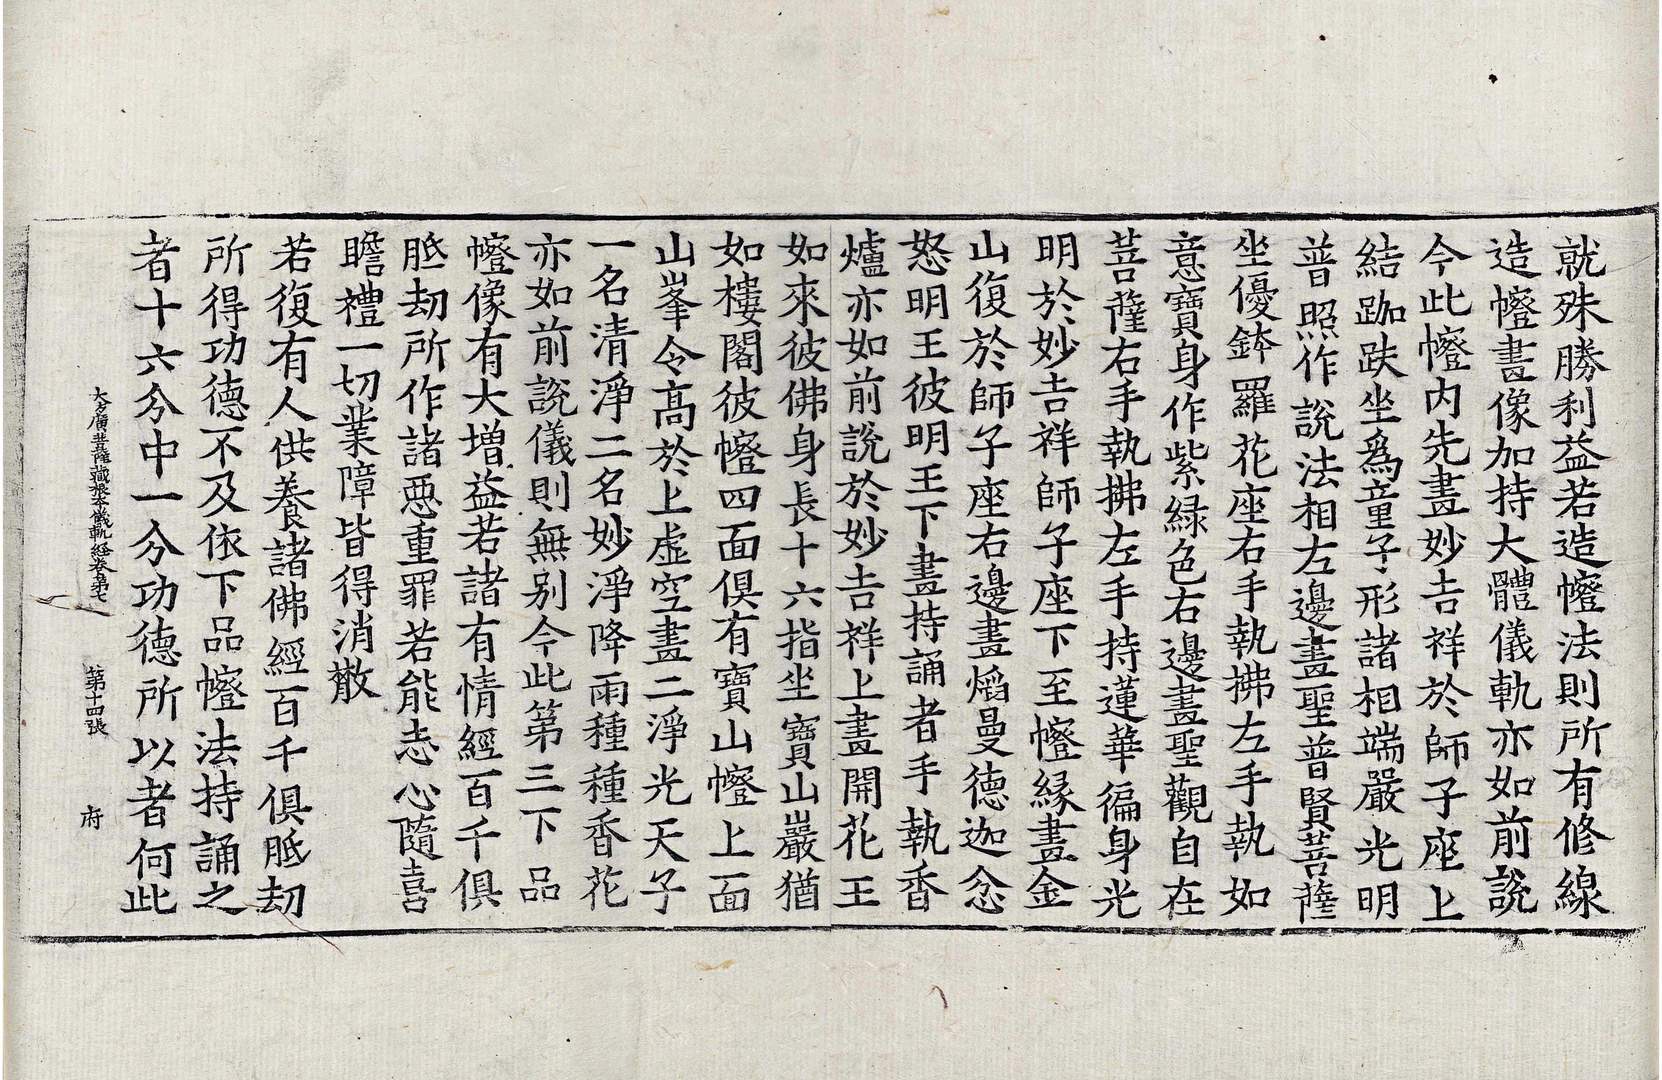 就殊勝利益若造㡧法則所有修線
造㡧畫像加持大體儀軌亦如前說
今此㡧内先畫妙吉祥於師子座上
結跏趺坐爲童子形諸相端嚴光明
普照作說法相左邊畫聖普賢菩薩
坐優鉢羅花座右手執拂左手執如
意寶身作紫緑色右邊畫聖觀自在
菩薩右手執拂左手持蓮華徧身光
明於妙吉祥師子座下至㡧緣畫金
山復於師子座右邊畫焰曼德迦忿
怒明王彼明王下畫持誦者手執香
爐亦如前說於妙吉祥上畫開花王
如來彼佛身長十六指坐寶山巖猶
如樓閣彼㡧四面俱有寶山㡧上面
山峯令高於上虛空畫二淨光天子
一名清淨二名妙淨降雨種種香花
亦如前說儀則無别今此第三下品
㡧像有大增益若諸有情經百千俱
胝劫所作諸惡重罪若能志心隨喜
瞻禮一切業障皆得消散
若復有人供養諸佛經百千俱胝劫
所得功德不及依下品㡧法持誦之
者十六分中一分功德所以者何此
大方廣菩薩藏根本儀軌經卷第七 第十四張 府